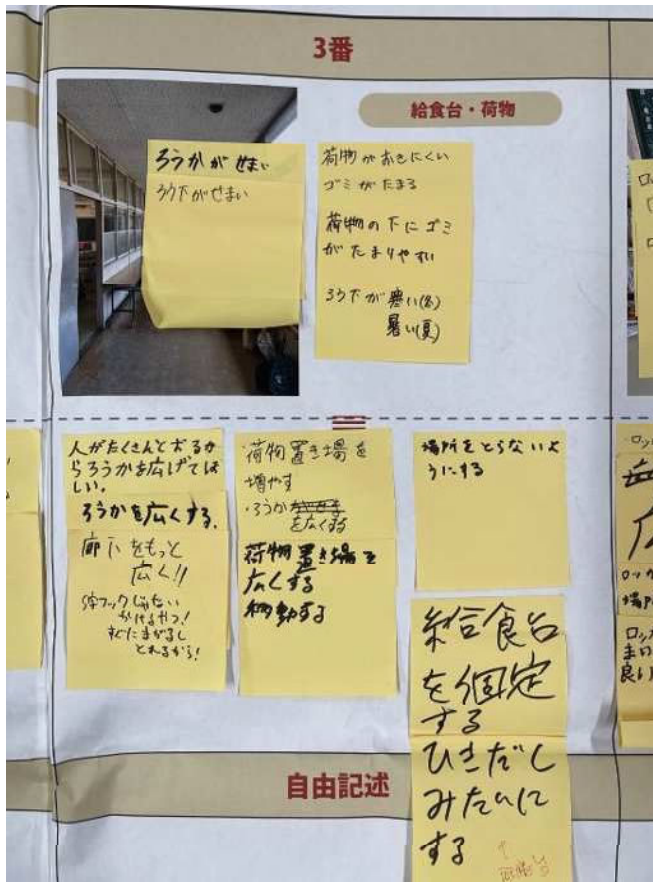 3番
給食台・荷物
ろうかがせまい
ろう下がせまい
荷物がおきにくい
ゴミがたまる
荷物の下にゴミ
がたまりやすい
ろう下が寒い(冬)
暑い(夏)
人がたくさんとおるか
らろうかを広げてほ
しい。
ろうかを広くする。
廊下をもっと
広く!!
S字フックじゃない
かけるやつ!
すぐにまがるし
とれるから!
荷物置き場を
増やす
・ろうか
を広くする
荷物置き場を
広くする
移動する
場所をとらないよ
うにする
給食台
を固定
する
ひきだし
みたいに
する
自由記述